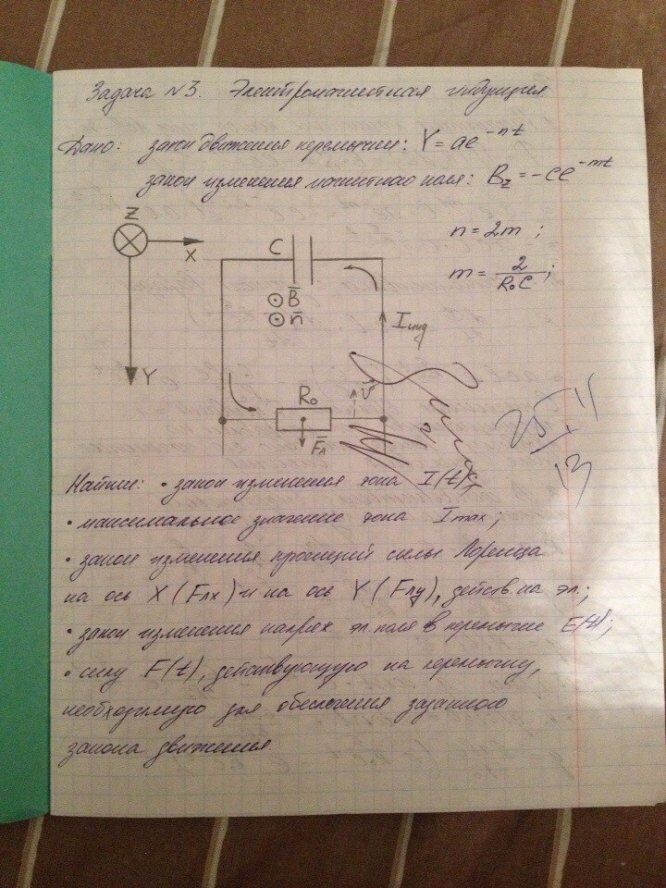 Задача №3. Электромагнитная индукция
Дано: закон движения перемычки: Y = ae^-nt
закон изменения магнитного поля: Bz = -ce^-mt
n = 2m ;
m = 2/R₀C ;
Z
X
Y
C
B̄
n̄
Iинд
R₀
V̄
F̄л
25.11
13
Найти: • закон изменения тока I(t);
• максимальное значение тока Imax;
• закон изменения проекций силы Лоренца
на ось X (Fлx) и на ось Y (Fлy), действ. на эл.;
• закон изменения напряж эл. поля в перемычке E(t);
• силу F(t), действующую на перемычку,
необходимую для обеспечения заданного
закона движения